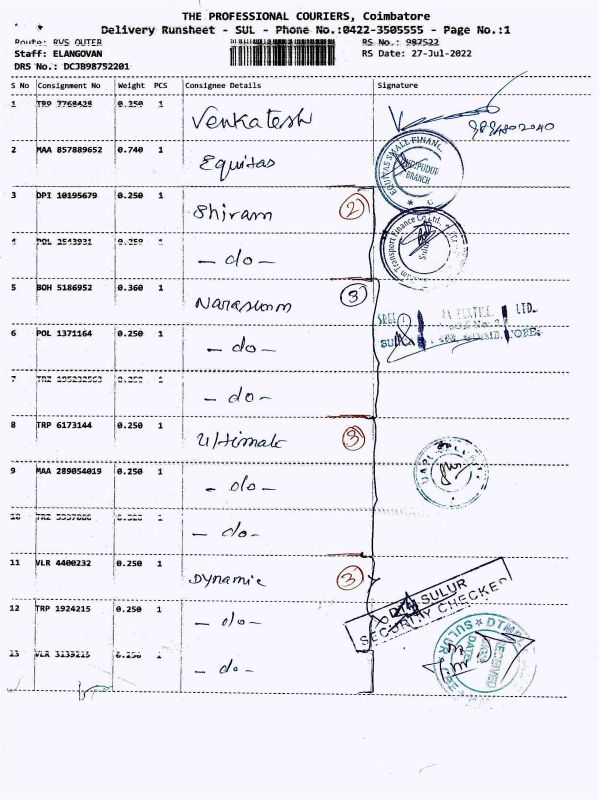 THE PROFESSIONAL COURIERS, Coimbatore
Delivery Runsheet - SUL - Phone No.:0422-3505555 - Page No.:1
Route: RVS OUTER RS No.: 987522
Staff: ELANGOVAN RS Date: 27-Jul-2022
DRS No.: DCJB98752201
S No Consignment No Weight PCS Consignee Details Signature
1 TRP 7768428 0.250 1 Venkatesh
2 MAA 857889652 0.740 1 Equitas
EQUITAS SMALL FINANC
BRANCH
3 DPI 10195679 0.250 1 Shiram 2
4 POL 2543931 0.250 1 - do -
Transport Finance Co Ltd.
5 BOH 5186952 0.360 1 Narasumm 3
SREE TEXTILE LTD.
6 POL 1371164 0.250 1 - do -
7 1 - do -
8 TRP 6173144 0.250 1 Ultimate 3
9 MAA 289054019 0.250 1 - do -
10 1 - do -
11 VLR 4400232 0.250 1 Dynamic 3
SULUR
SECURITY CHECKED
12 TRP 1924215 0.250 1 - do -
13 VLR 1 - do -
SULUR ★ DTM
RECEIVED
DATE